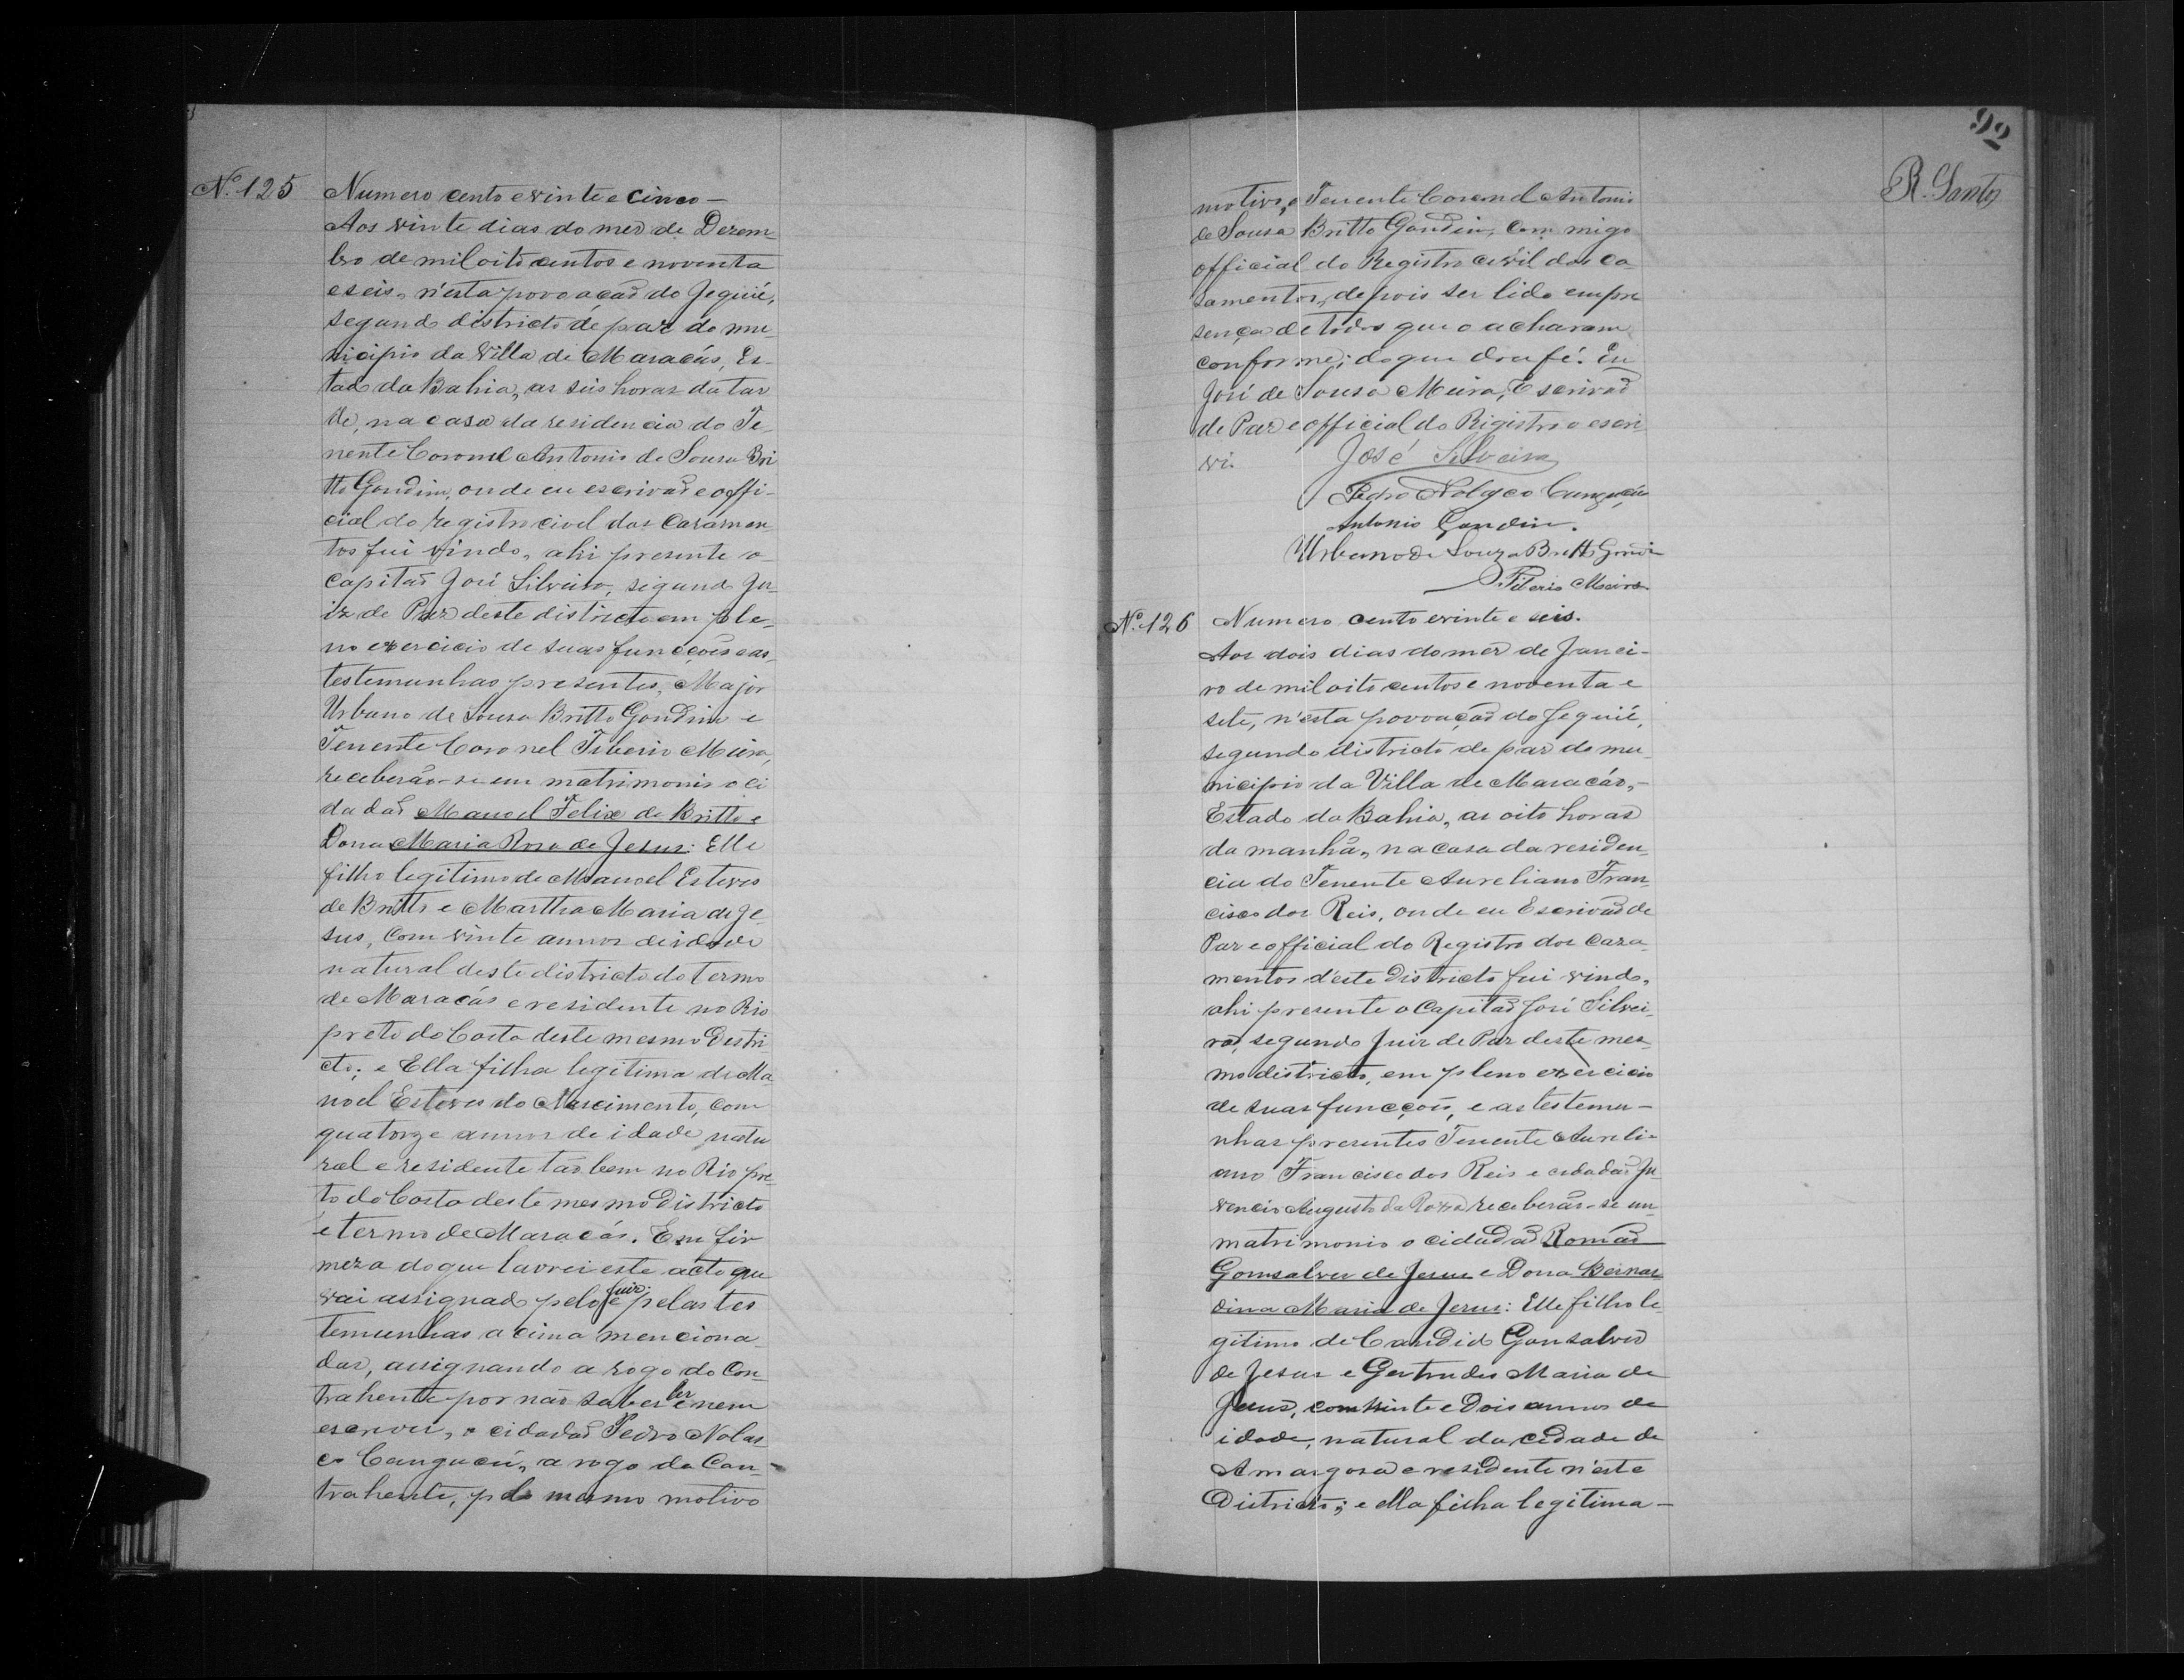 Nº 125
Numero cento e vinte e cinco —
Aos vinte dias do mez de Dezem-
bro de mil oito centos e noventa
e seis, n'esta povoação do Jequié,
segundo districto de paz do mu-
nicipio da Villa de Maracás, Es-
tado da Bahia, as seis horas da tar
de, na casa da residencia do Te-
nente Coronel Antonio de Sousa Bri
tto Gondim, onde eu escrivão e offi-
cial do registro civel dos Casamen-
tos fui vindo, ahi presente o
Capitão José Silveira, segund Ju-
iz de Paz deste districto em ple-
no exercicio de suas funcções e as
testemunhas presentes, Major
Urbano de Sousa Britto Gondim e
Tenente Coronel Tiberio Meira,
receberão-se em matrimonio o ci
dadão Manoel Felix de Britto e
Dona Maria Rosa de Jesus: Elle
filho legitimo de Manoel Esteves
de Britto e Martha Maria de Je
sus, com vinte annos de idade
natural deste districto do termo
de Maracás e residente no Rio
preto do Costa deste mesmo Destri-
cto; e Ella filha legitima de Ma
noel Esteves do Nascimento, com
quatorze annos de idade, natu
ral e residente tão bem no Rio pre-
to do Costa deste mesmo Districto
e termo de Maracás. Em fir
meza do que lavrei este acto que
vai assignado pelo juiz e pelas tes
temunhas acima menciona-
das, assignando a rogo do Con-
trahente por não saber ler e nem
escrever, o cidadão Pedro Nolas-
co Canguçú, a rogo da Con-
trahente, pelo mesmo motivo
92
R. Santos
motivo, o Tenente Coronel Antonio
de Sousa Britto Gondim, com migo
official do Registro civil dos Ca-
samentos, depois ser lido em pre
sença de todos que o acharam
conforme; do que dou fé. Eu
José de Sousa Meira, Escrivão
de Paz e official do Rigistro o escri
vi.
José Silveira
Pedro Nolasco Canguçú
Antonio Gondim.
Urbano de Souza Britto Gondim
Tiberio Meira
Nº 126
Numero cento e vinte e seis.
Aos dois dias do mez de Janei-
ro de mil oito centos e noventa e
sete, n'esta povoação do Jequié,
segundo districto de paz do mu-
nicipio da Villa de Maracás, —
Estado da Bahia, as oito horas
da manhã, na casa da residen-
cia do Tenente Aureliano Fran-
cisco dos Reis, onde eu Escrivão de
Paz e official do Registro dos Caza-
mentos d'este Districto fui vindo,
ahi presente o Capitão José Silvei-
ra, segundo Juiz de Paz deste mes-
mo districto, em pleno exercicio
de suas funcções, e as testemu-
nhas presentes Tenente Aureli-
ano Francisco dos Reis e cidadão Ju-
vencio Augusto da receberão-se em
matrimonio o cidadão Romão
Gomsalves de Jesus e Dona Bernar-
dina Maria de Jesus: Elle filho le
gitimo de Candido Gonsalves
de Jesus e Gertrudes Maria de
Jesus, com vinte e Dois annos de
idade, natural da cidade de
Amargosa e residente n'este
Districto; e ella filha legitima —